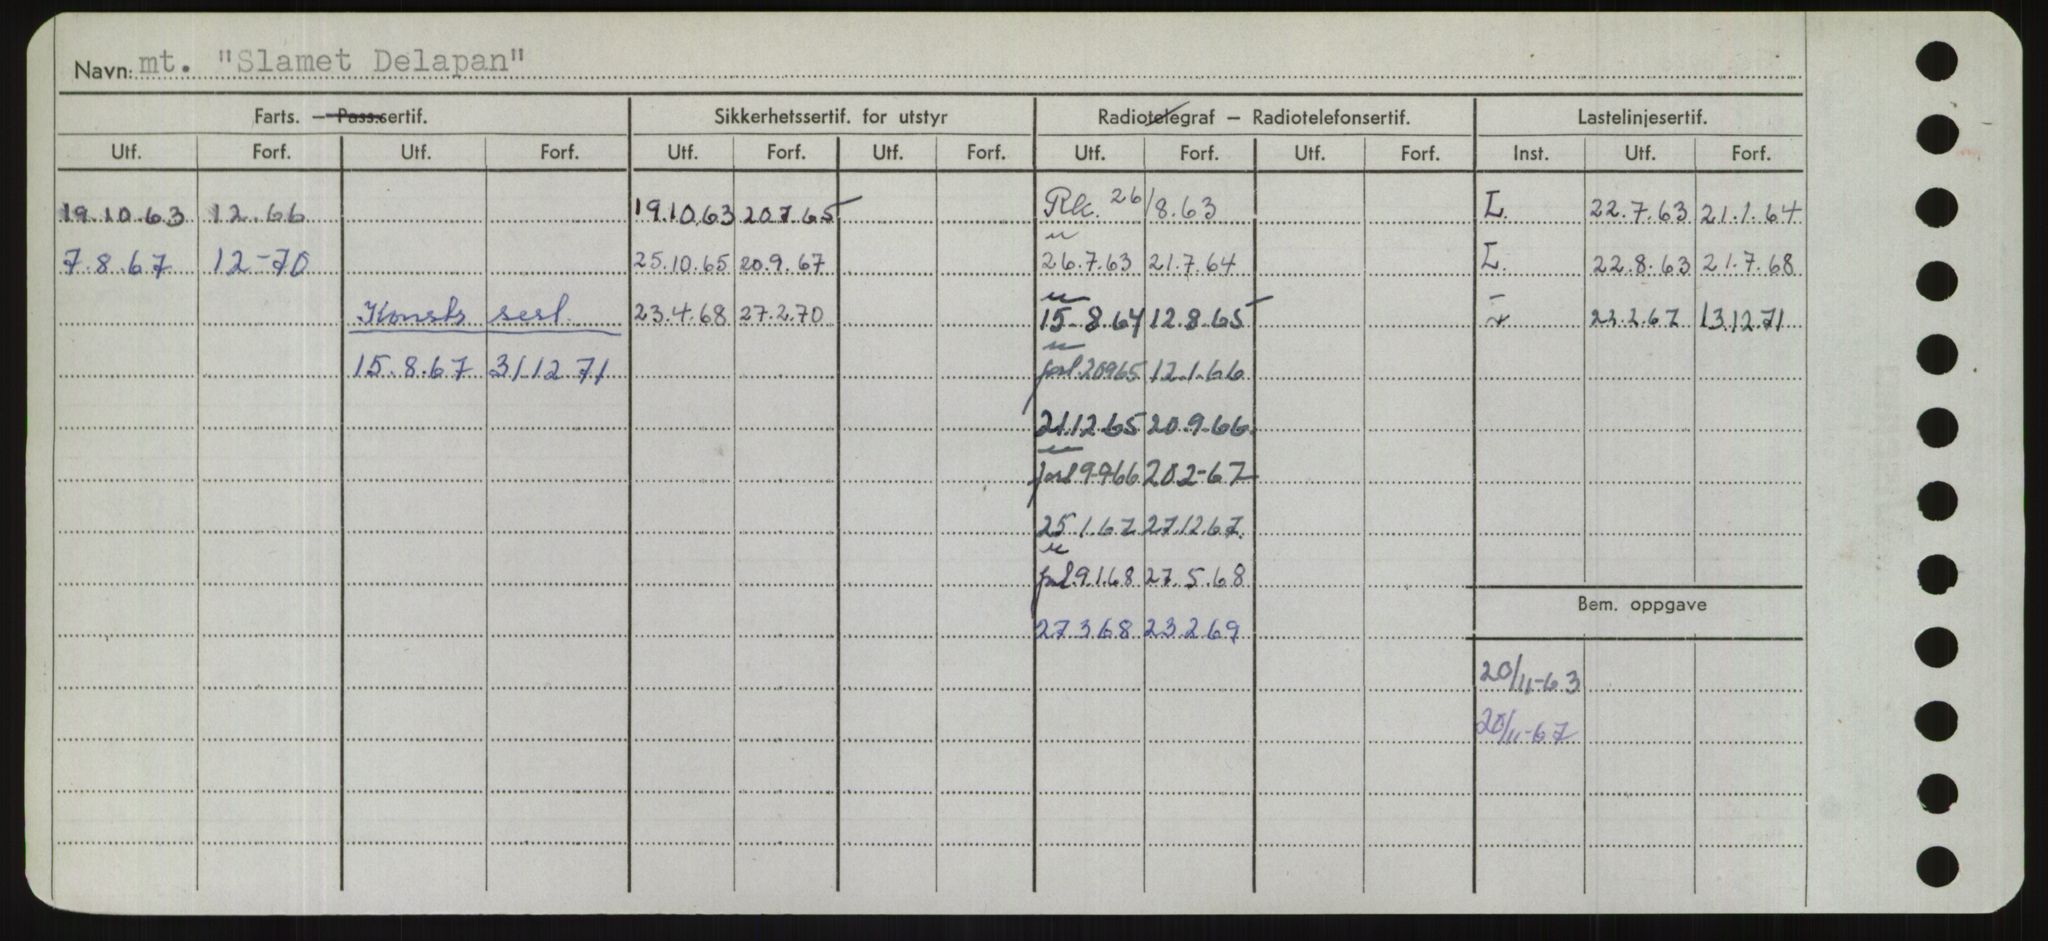 Navn: mt. "Slamet Delapan"
Farts. — Pass.sertif. Sikkerhetssertif. for utstyr Radiotelegraf — Radiotelefonsertif. Lastelinjesertif.
Utf. Forf. Utf. Forf. Utf. Forf. Utf. Forf. Utf. Forf. Utf. Forf. Inst. Utf. Forf.
19.10.63 12.66 19.10.63 20.7.65 Rk. 26/8.63 I. 22.7.63 21.1.64
7.8.67 12-70 25.10.65 20.9.67 26.7.63 21.7.64 I. 22.8.63 21.7.68
Konstr sert. 23.4.68 27.2.70 15.8.64 12.8.65 22.2.67 13.12.71
15.8.67 31.12.71 forl. 20965 12.1.66
21.12.65 20.9.66
forl 9-766 20.2-67
25.1.67 27.12.67
forl. 9.1.68 27.5.68
Bem. oppgave
27368 23.2.69
20/11-63
20/11-67